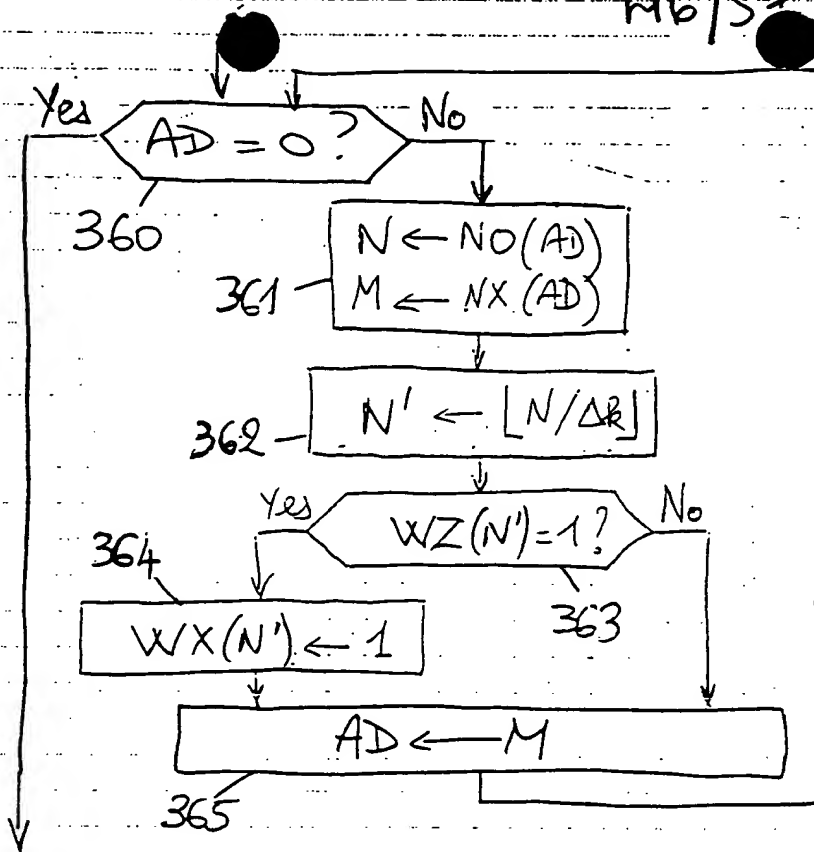 Yes
AD = 0?
No
360
N ← NO(AD)
M ← NX(AD)
361
N' ← ⌊N/Δk⌋
362
Yes
WZ(N')=1?
No
364
363
WX(N') ← 1
AD ← M
365